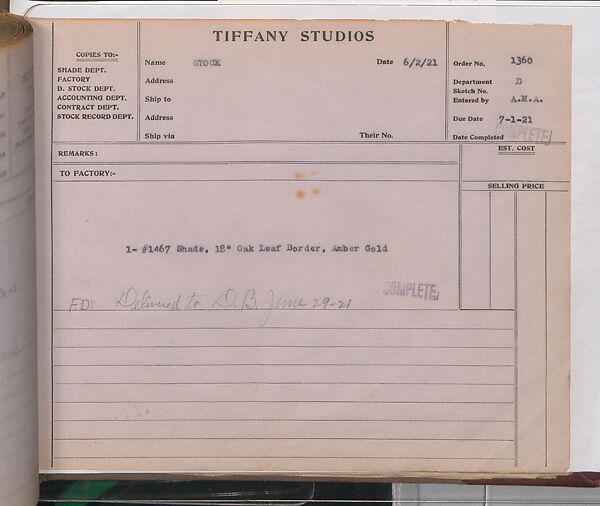 TIFFANY STUDIOS
COPIES TO:-
SHADE DEPT.
FACTORY
D. STOCK DEPT.
ACCOUNTING DEPT.
CONTRACT DEPT.
STOCK RECORD DEPT.
Name STOCK Date 6/2/21
Address
Ship to
Address
Ship via Their No.
Order No. 1360
Department D
Sketch No.
Entered by A.M.A.
Due Date 7-1-21
Date Completed
REMARKS:
EST. COST
TO FACTORY:-
SELLING PRICE
1- #1467 Shade, 18" Oak Leaf Border, Amber Gold
COMPLETE
F.D: Delivered to D.B. June 29-21